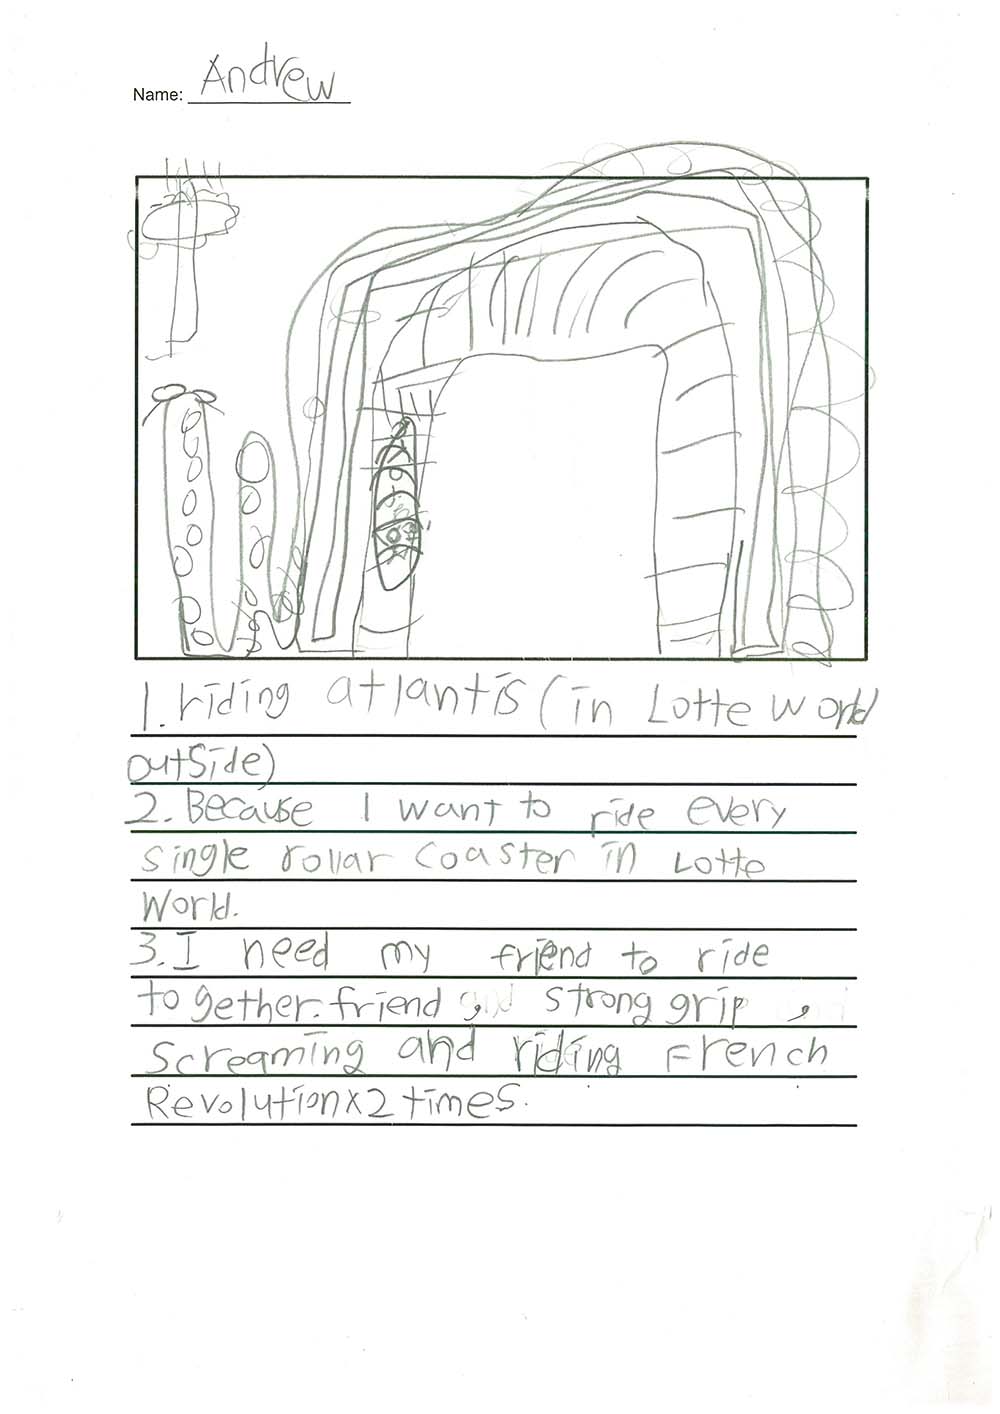 Name: Andrew
1. riding atlantis (in Lotte world
outside)
2. Because I want to ride every
single rollar coaster in Lotte
World.
3. I need my friend to ride
together. friend, strong grip,
Screaming and riding French
Revolution x 2 times.